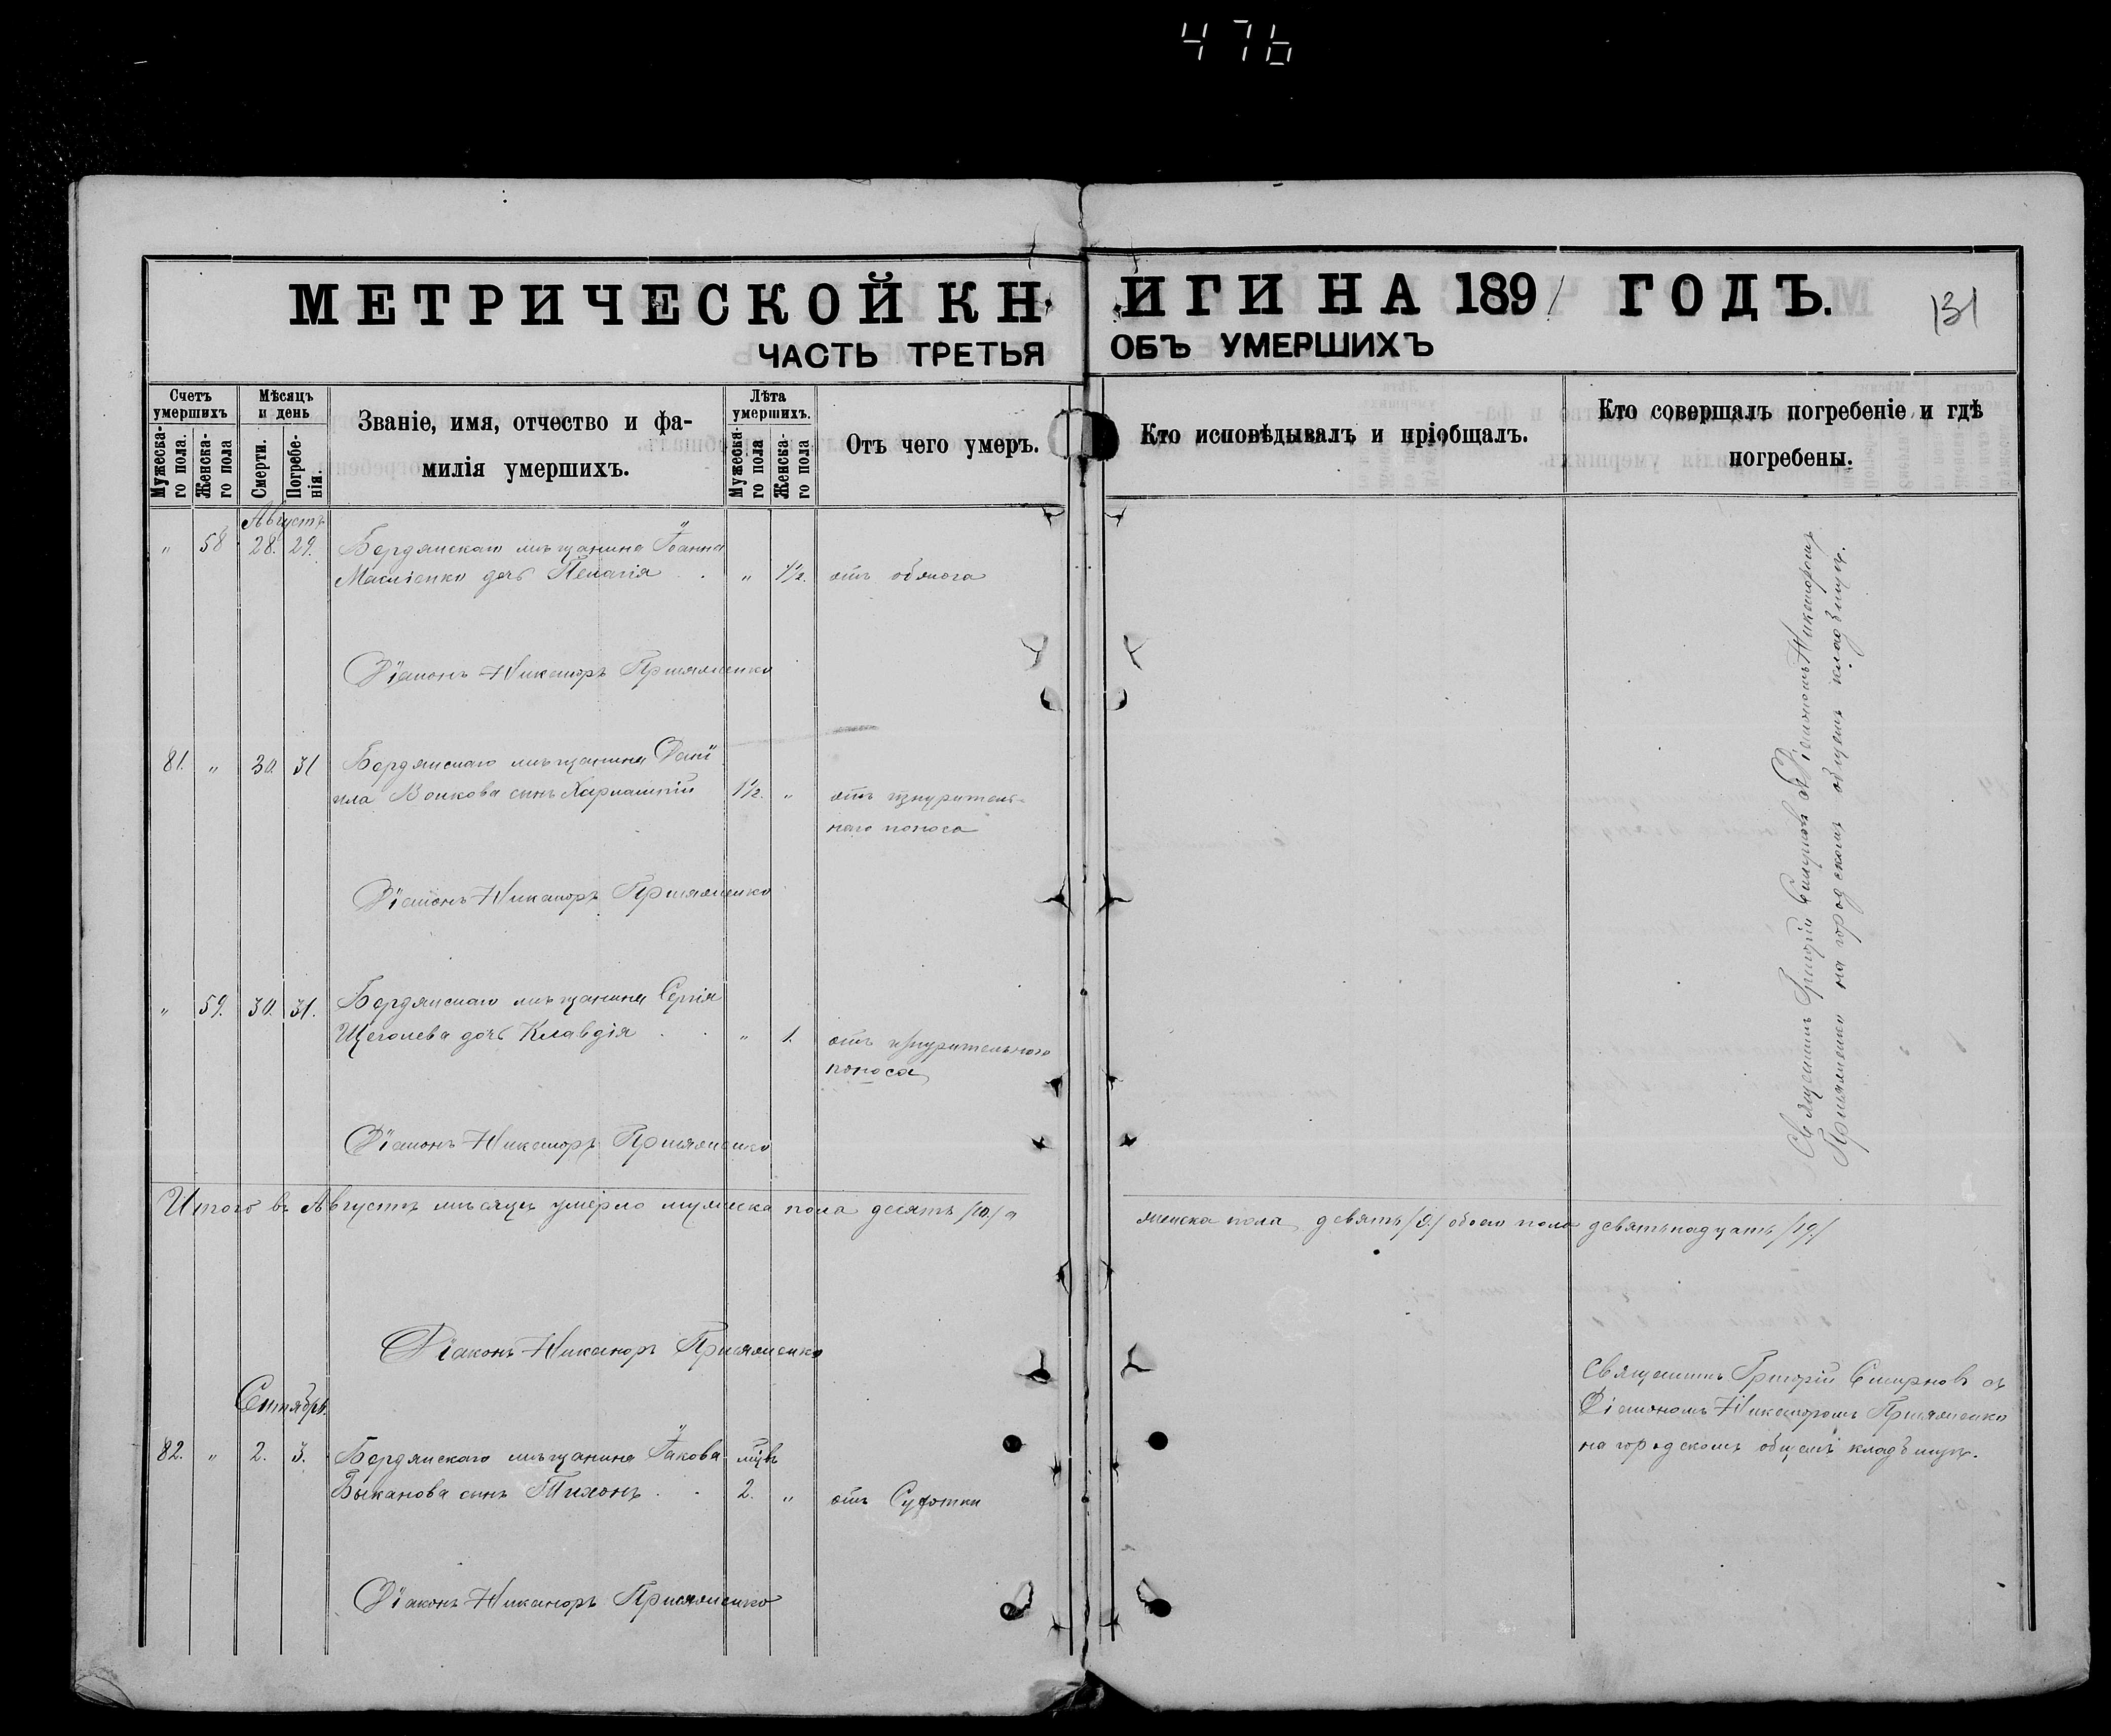 476
МЕТРИЧЕСКОЙ КНИГИ НА 1891 ГОДЪ.
131
ЧАСТЬ ТРЕТЬЯ ОБЪ УМЕРШИХЪ
Счетъ умершихъ
Мужеска-го пола.
Женска-го пола
Мѣсяцъ и день
Смерти.
Погребе-нія.
Званіе, имя, отчество и фа-
милія умершихъ.
Лѣта умершихъ.
Мужеска-го пола
Женска-го пола
Отъ чего умеръ.
Кто исповѣдывалъ и пріобщалъ.
Кто совершалъ погребеніе и гдѣ
погребены.
Августъ
" 58 28. 29. Бердянскаго мѣщанина Іоанна
дочь Пелагія " 1½. отъ
Діаконъ Никаноръ
81. " 30. 31 Бердянскаго мѣщанина Дані
ила Волкова сынъ Харлампій 1½. " отъ изнурител-
наго поноса
Діаконъ Никаноръ
" 59. 30. 31. Бердянскаго мѣщанина Сергія
Щеголева дочь Клавдія " 1. отъ изнурительного
поноса
Діаконъ Никаноръ
Священникъ Григорій Смирновъ съ Діакономъ Никаноромъ
на городскомъ общемъ кладбищѣ.
Итого въ Августѣ мѣсяцѣ умерло мужеска пола десять /10./ а
женска пола девять /9./ обоего пола девятьнадцать /19/
Діаконъ Никаноръ
Сентябрь.
82. " 2. 3. Бердянскаго мѣщанина Іакова мцъ
Быканова сынъ Тихонъ 2. " отъ Сухотки
Священникъ Григорій Смирновъ съ
Діакономъ Никаноромъ
на городскомъ общемъ кладбищѣ.
Діаконъ Никаноръ